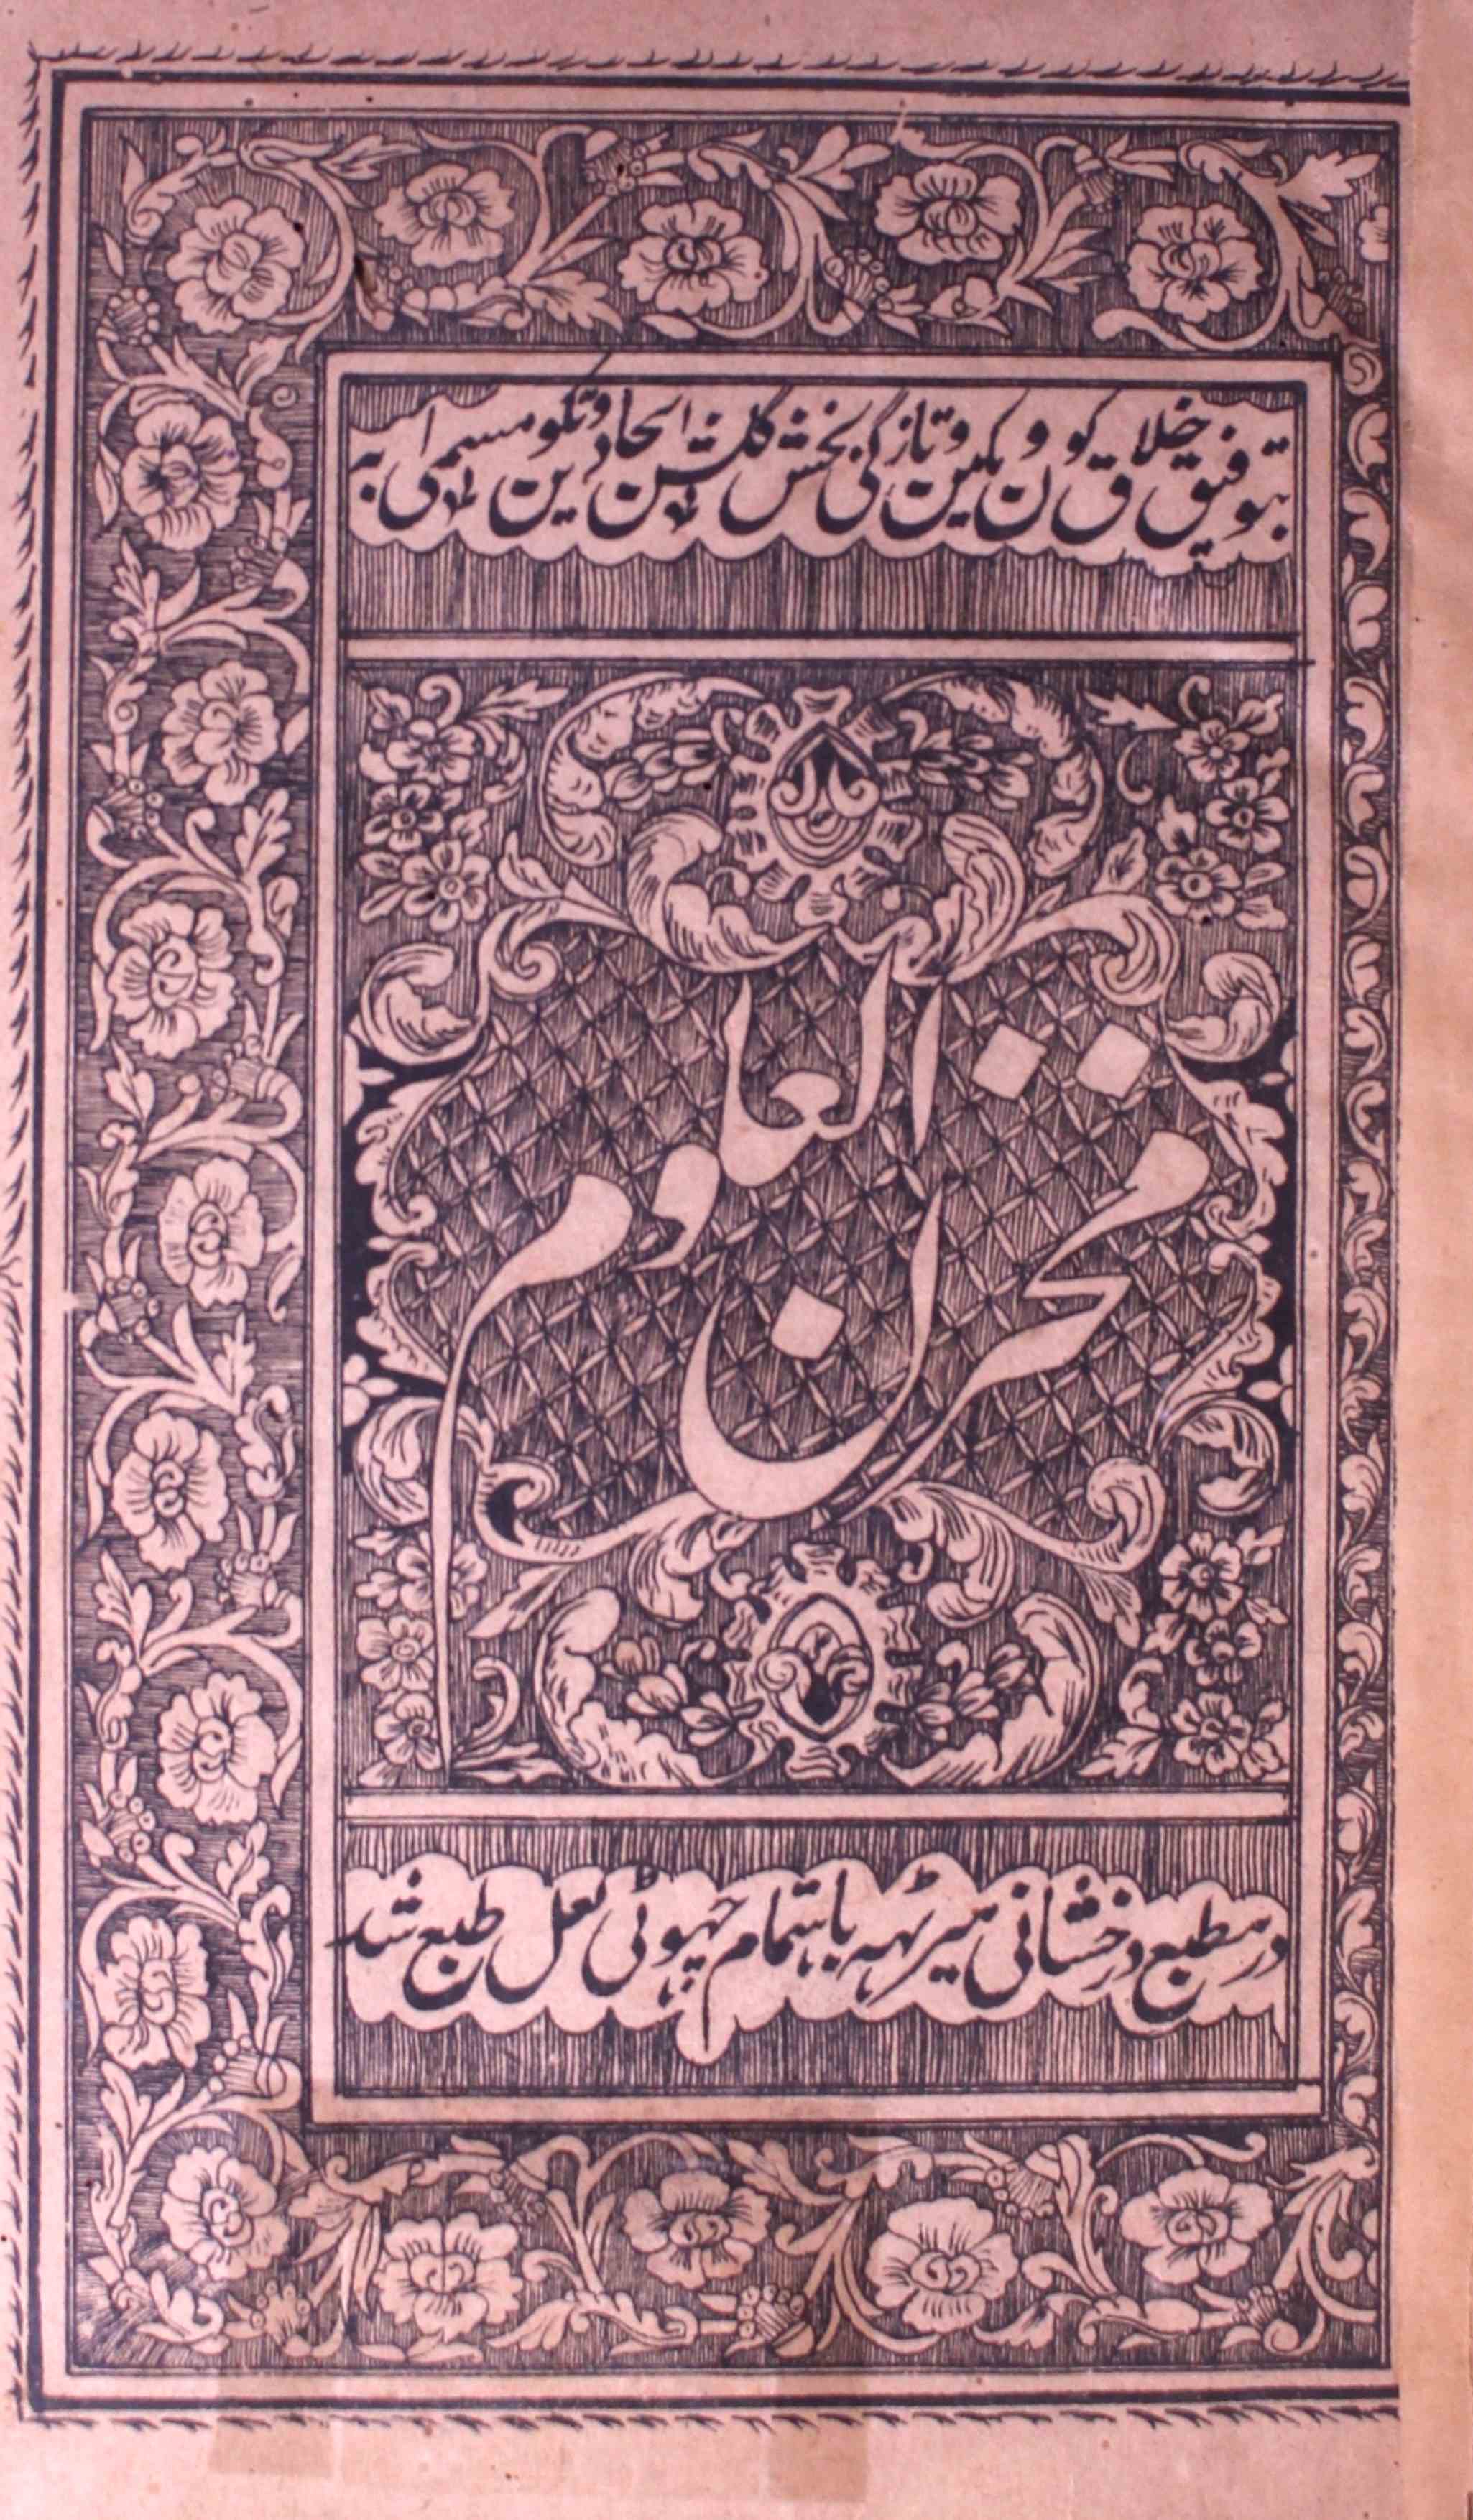 بتوفیق خلاق کون و مکین و تازگی بخش گلشن ایجاد و تکوین مسمی به
مخزن العلوم
در مطبع درخشانی میرٹهه باہتمام چهوٹی لعل طبع شد